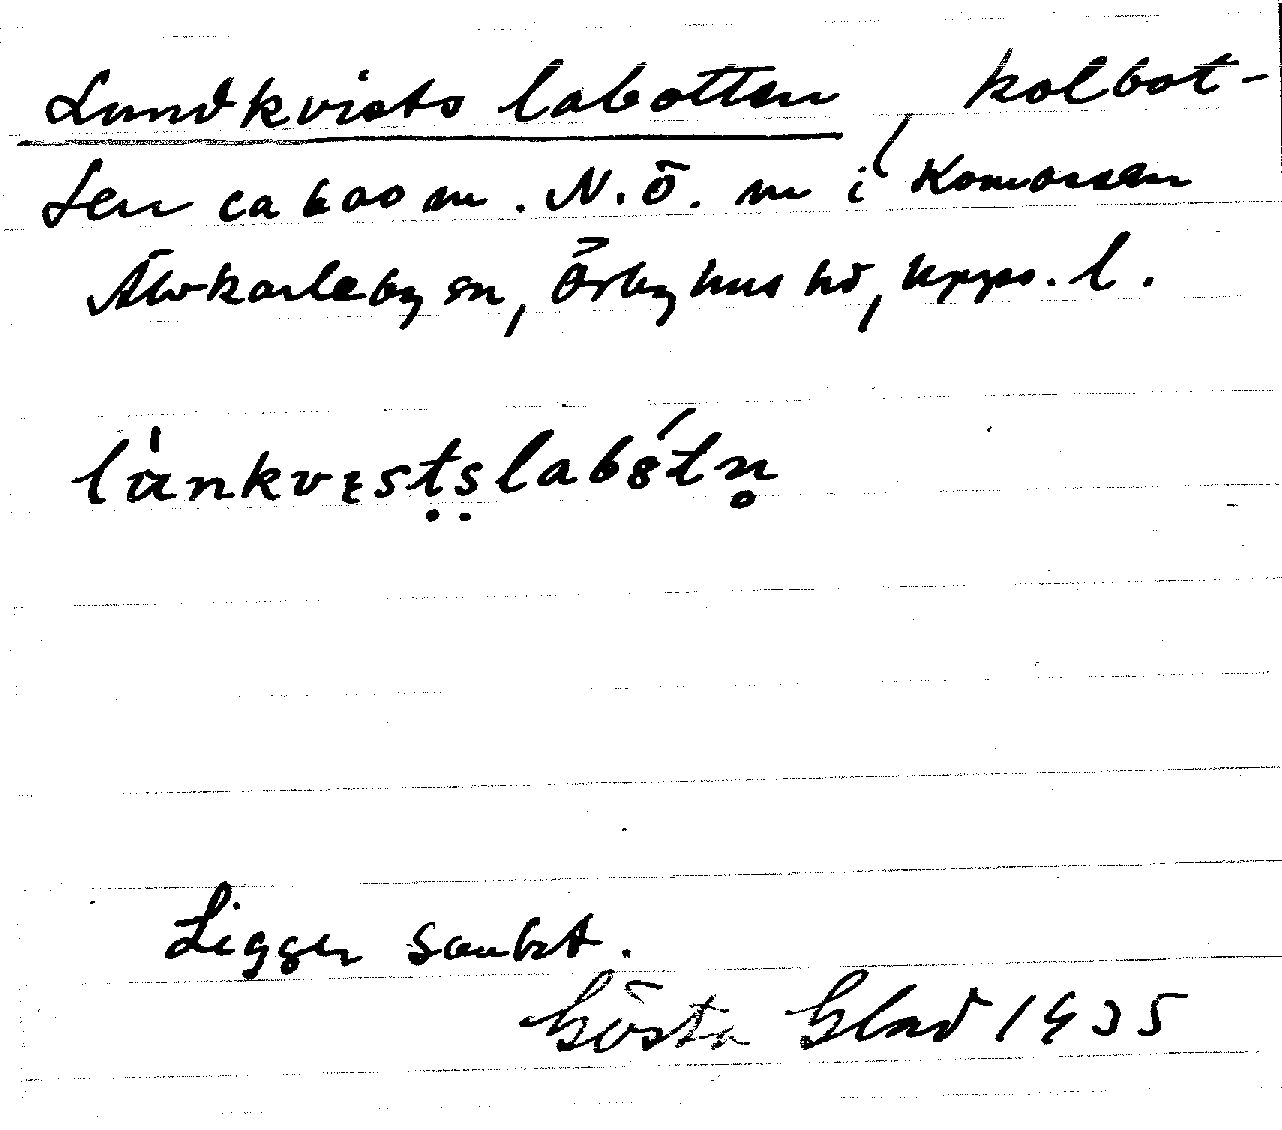 Lundkvists labotten kolbot-
ten ca 600 m. N.Ö. m i Komossen
Älvkarleby sn, Örbyhus hd, Upps. l.
lànkvɪstslabótn̥
Ligger sankt.
Gösta Glad 1935